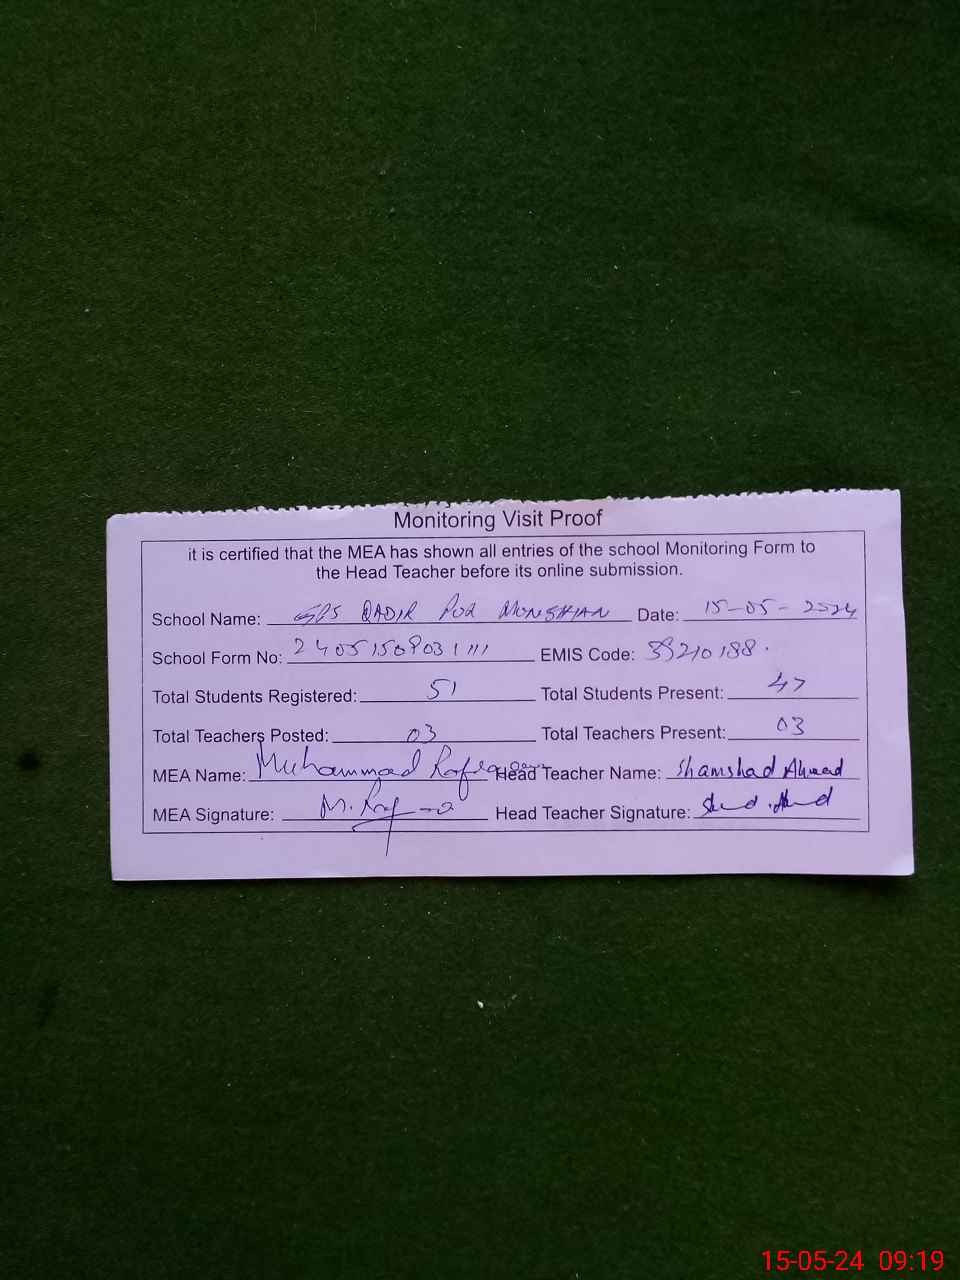 Monitoring Visit Proof
it is certified that the MEA has shown all entries of the school Monitoring Form to
the Head Teacher before its online submission.
School Name: GPS QADIR POR MONGHIAN Date: 15-05-2024
School Form No: 24051509031111 EMIS Code: 39210188.
Total Students Registered: 51 Total Students Present: 47
Total Teachers Posted: 03 Total Teachers Present: 03
MEA Name: Muhammad Head Teacher Name: Shamshad Ahmad
MEA Signature: Head Teacher Signature:
15-05-24 09:19